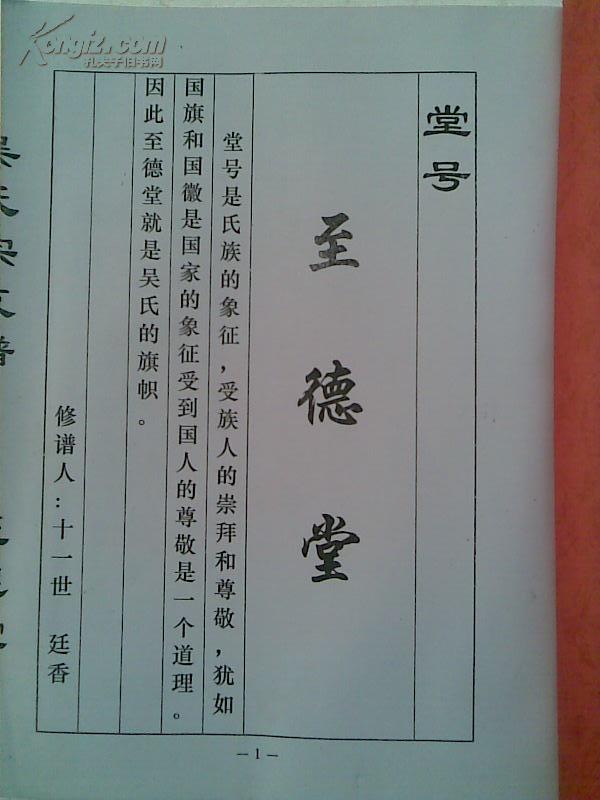 堂号
至德堂
堂号是氏族的象征，受族人的崇拜和尊敬，犹如
国旗和国徽是国家的象征受到国人的尊敬是一个道理。
因此至德堂就是吴氏的旗帜。
修谱人：十一世 廷香
—1—
Kongfz.com
孔夫子旧书网